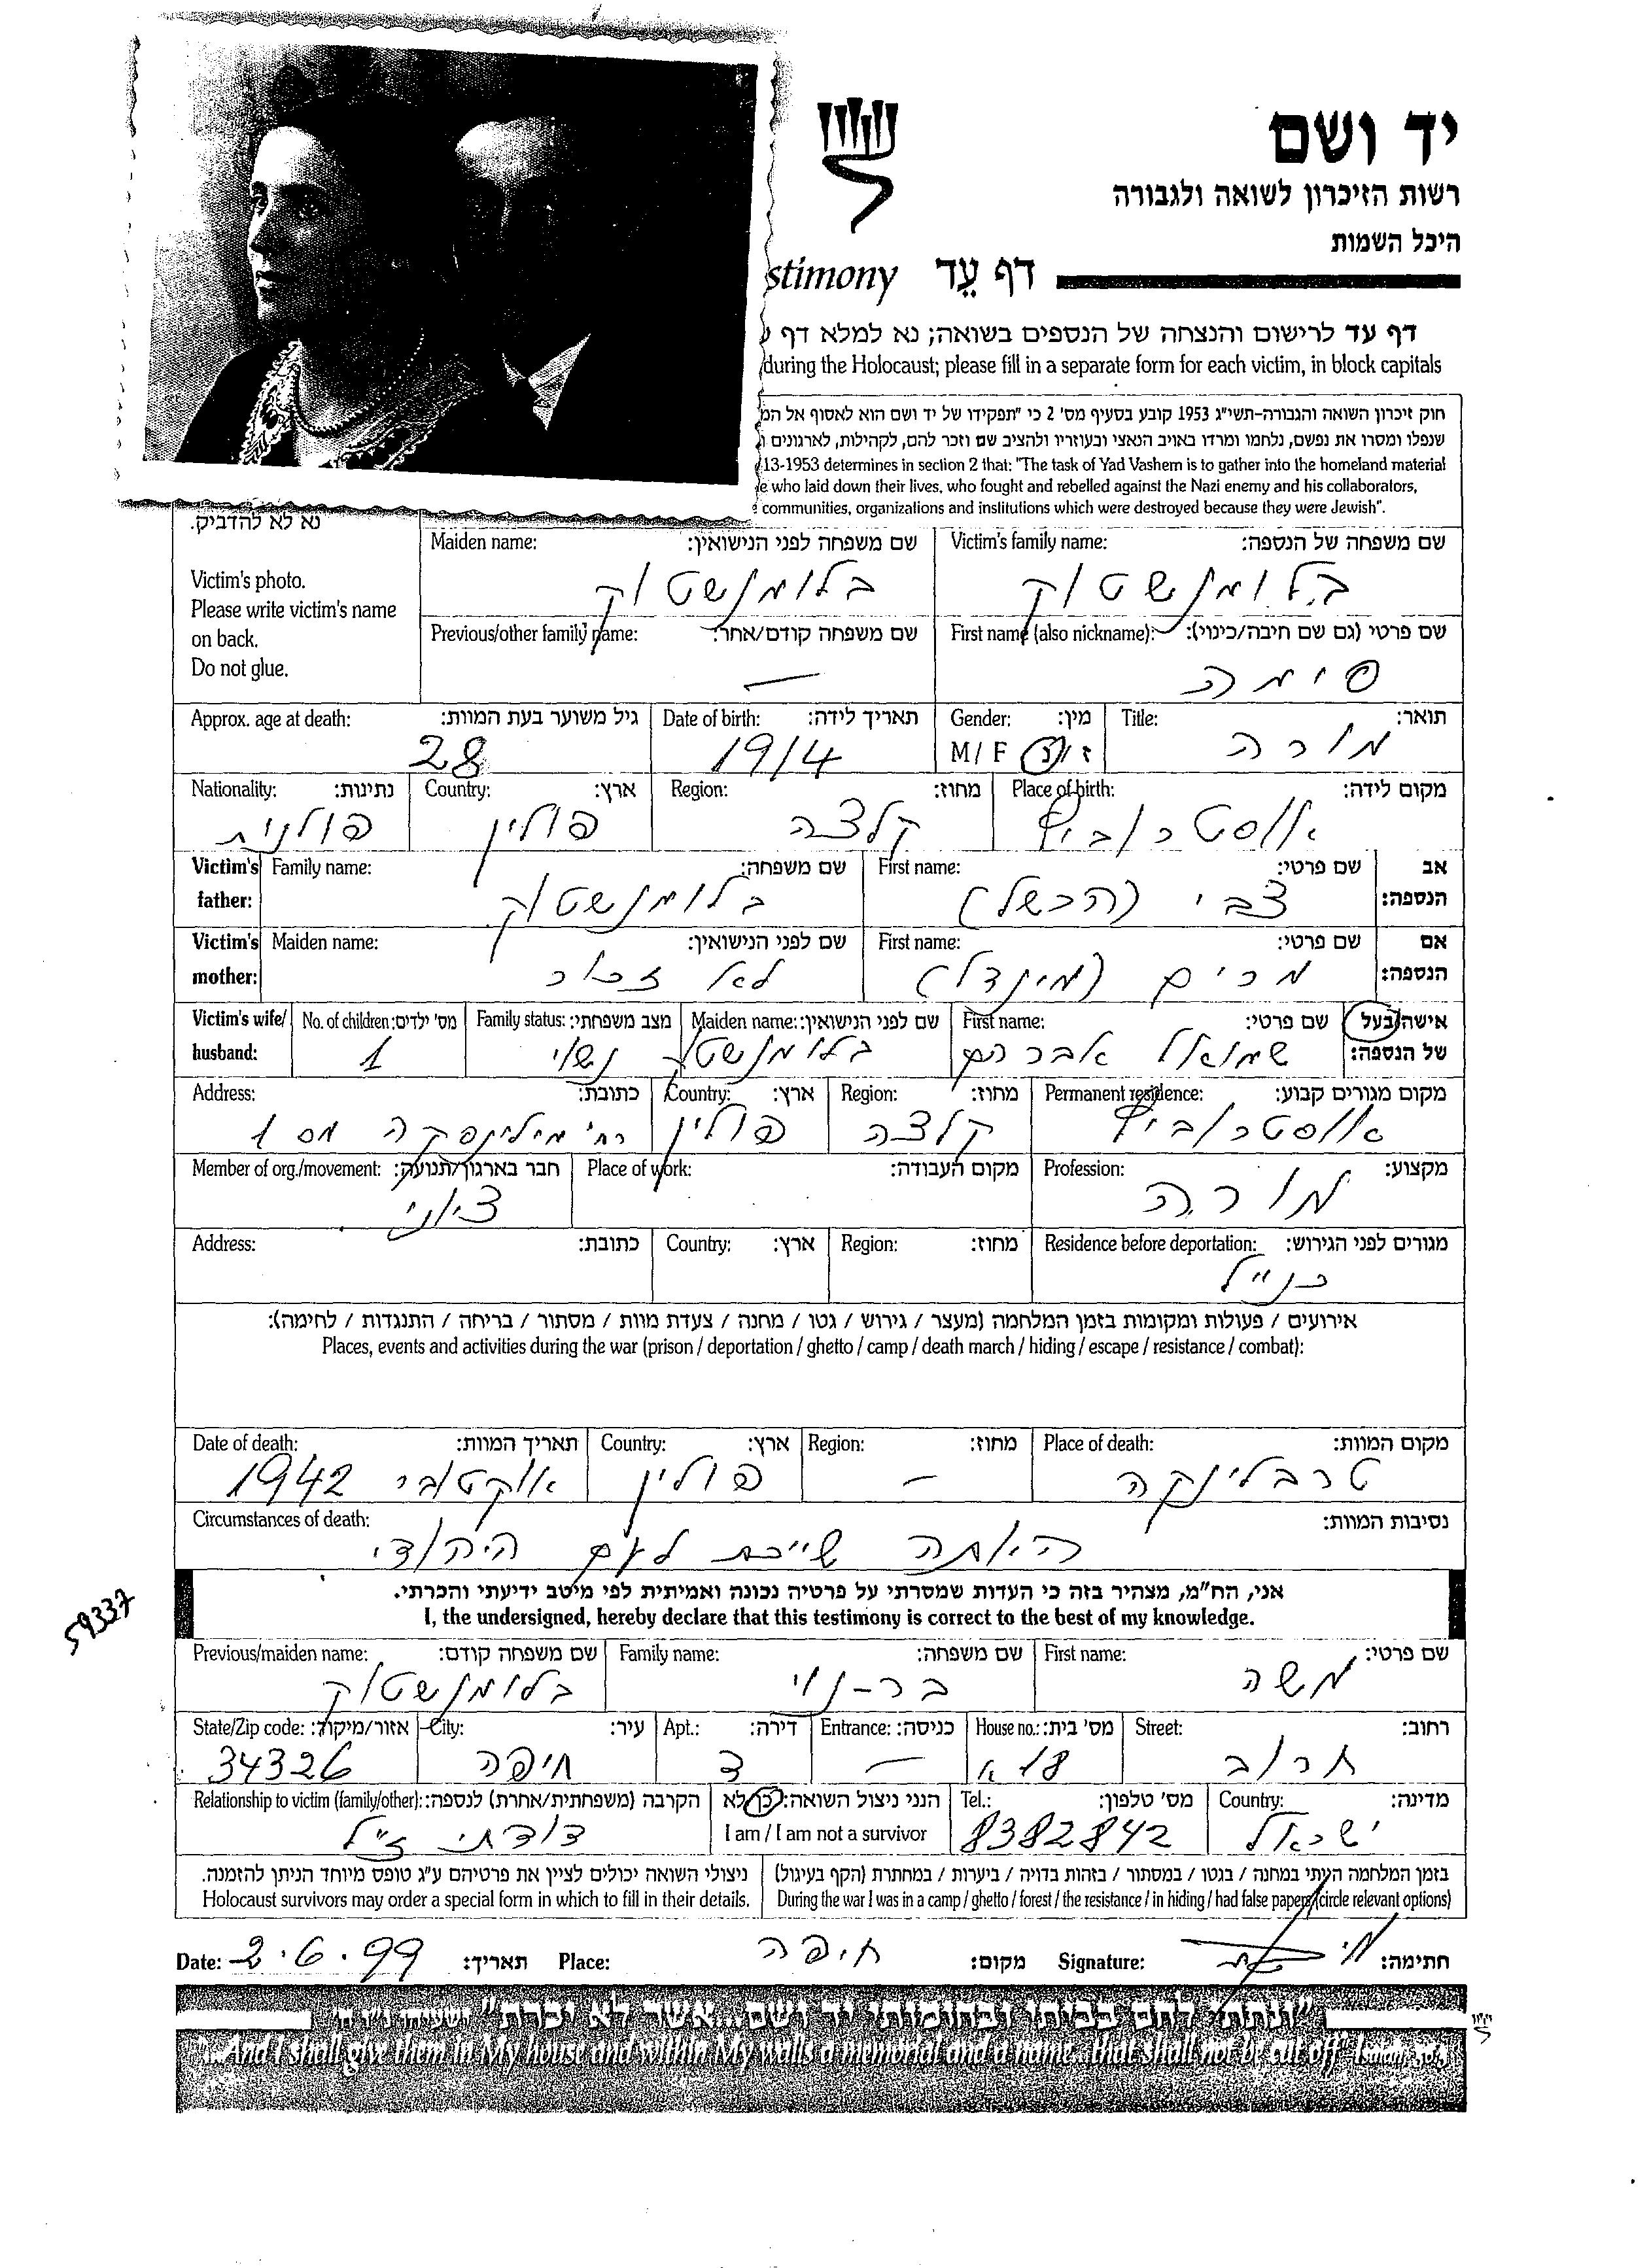 יד ושם
רשות הזיכרון לשואה ולגבורה
היכל השמות
stimony דף עֵד
דף עד לרישום והנצחה של הנספים בשואה; נא למלא דף
during the Holocaust; please fill in a separate form for each victim, in block capitals
חוק זיכרון השואה והגבורה-תשי"ג 1953 קובע בסעיף מס' 2 כי "תפקידו של יד ושם הוא לאסוף אל
שנפלו ומסרו את נפשם, נלחמו ומרדו באויב הנאצי ובעוזריו ולהציב שם וזכר להם, לקהילות, לארגונים
13-1953 determines in section 2 that: "The task of Yad Vashem is to gather into the homeland material
e who laid down their lives, who fought and rebelled against the Nazi enemy and his collaborators,
communities, organizations and institutions which were destroyed because they were Jewish".
נא לא להדביק.
Victim's photo.
Please write victim's name
on back.
Do not glue.
Victim's family name: שם משפחה של הנספה:
בלומנשטוק
Maiden name: שם משפחה לפני הנישואין:
בלומנשטוק
First name (also nickname): שם פרטי (גם שם חיבה/כינוי):
סימה
Previous/other family name: שם משפחה קודם/אחר:
—
Title: תואר:
מורה
Gender: מין:
M/F ז/נ
Date of birth: תאריך לידה:
1914
Approx. age at death: גיל משוער בעת המוות:
28
Place of birth: מקום לידה:
אוסטרוביץ
Region: מחוז:
קלצה
Country: ארץ:
פולין
Nationality: נתינות:
פולנית
Victim's father: אב הנספה:
First name: שם פרטי:
צבי (הרשל)
Family name: שם משפחה:
בלומנשטוק
Victim's mother: אם הנספה:
First name: שם פרטי:
מרים (מינדל)
Maiden name: שם לפני הנישואין:
לא זכור
Victim's wife/ husband: אישה/בעל של הנספה:
First name: שם פרטי:
שמואל אברהם
Maiden name: שם לפני הנישואין:
בלומנשטוק
Family status: מצב משפחתי:
נשוי
No. of children: מס' ילדים:
1
Permanent residence: מקום מגורים קבוע:
אוסטרוביץ
Region: מחוז:
קלצה
Country: ארץ:
פולין
Address: כתובת:
רח' מילינסקה מס 1
Profession: מקצוע:
מורה
Place of work: מקום העבודה:
Member of org./movement: חבר בארגון/תנועה:
ציוני
Residence before deportation: מגורים לפני הגירוש:
כנ"ל
Region: מחוז:
Country: ארץ:
Address: כתובת:
אירועים / פעולות ומקומות בזמן המלחמה (מעצר / גירוש / גטו / מחנה / צעדת מוות / מסתור / בריחה / התנגדות / לחימה):
Places, events and activities during the war (prison / deportation / ghetto / camp / death march / hiding / escape / resistance / combat):
Place of death: מקום המוות:
טרבלינקה
Region: מחוז:
—
Country: ארץ:
פולין
Date of death: תאריך המוות:
אוקטובר 1942
Circumstances of death: נסיבות המוות:
היותה שייכת לעם היהודי.
אני, הח"מ, מצהיר בזה כי העדות שמסרתי על פרטיה נכונה ואמיתית לפי מיטב ידיעתי והכרתי.
I, the undersigned, hereby declare that this testimony is correct to the best of my knowledge.
59337
First name: שם פרטי:
משה
Family name: שם משפחה:
בר-נוי
Previous/maiden name: שם משפחה קודם:
בלומנשטוק
Street: רחוב:
חרוב
House no.: מס' בית:
18 א
Entrance: כניסה:
—
Apt.: דירה:
3
City: עיר:
חיפה
State/Zip code: אזור/מיקוד:
34326
Country: מדינה:
ישראל
Tel.: מס' טלפון:
8382842
הנני ניצול השואה: כן/לא
I am / I am not a survivor
Relationship to victim (family/other): הקרבה (משפחתית/אחרת) לנספה:
דודתי ז"ל
בזמן המלחמה הייתי במחנה / בגטו / במסתור / בזהות בדויה / ביערות / במחתרת (הקף בעיגול)
During the war I was in a camp / ghetto / forest / the resistance / in hiding / had false papers (circle relevant options)
ניצולי השואה יכולים לציין את פרטיהם ע"ג טופס מיוחד הניתן להזמנה.
Holocaust survivors may order a special form in which to fill in their details.
Date: 2.6.99 תאריך: Place: חיפה מקום: Signature: חתימה:
"ונתתי להם בביתי ובחומותי יד ושם...אשר לא יכרת" ישעיהו נ"ו ה'
"...And I shall give them in My house and within My walls a memorial and a name...that shall not be cut off" Isaiah, 56,5